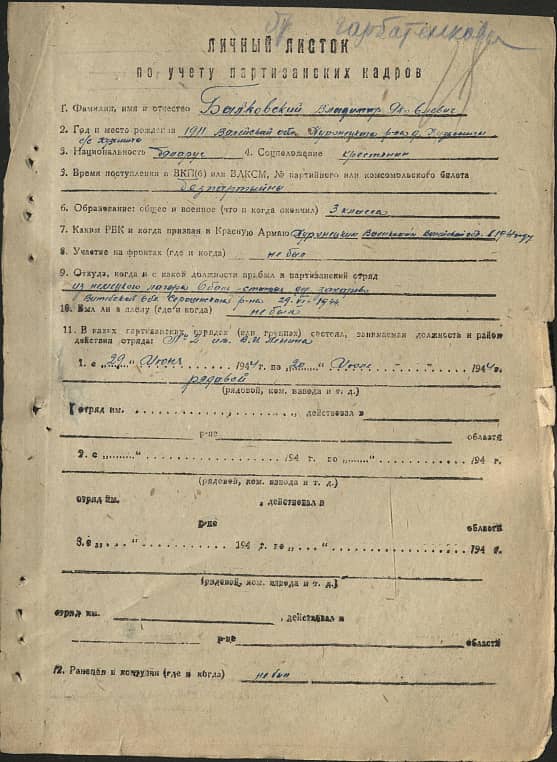 ЛИЧНЫЙ ЛИСТОК
по учету партизанских кадров
1. Фамилия, имя и отчество Баяковский Владимир
2. Год и место рождения 1911
с/с
3. Национальность беларус 4. Соцположение крестянин
5. Время поступления в ВКП(б) или ВЛКСМ, № партийного или комсомольского билета
безпартыйны
6. Образование: общее и военное (что и когда окончил) 3 класса
7. Каким РВК и когда призван в Красную Армию
8. Участие на фронтах (где и когда) не был
9. Откуда, когда и с какой должности прибыл в партизанский отряд
из немецкого лагера
Витебской обл. р-на 29. VI-1944
10. Был ли в плену (где и когда) не был
11. В каких партизанских отрядах (или группах) состоял, занимаемая должность и район
действия отряда: № 2 им. В.И Ленина
1. с „29" Июня 1944 г. по „30" 1944 г.
рядовой
(рядовой, ком. взвода и т. д.)
отряд им. , действовал в
р-не области
2. с „........" 194 г. по „........" 194 г.
(рядовой, ком. взвода и т. д.)
отряд им. , действовал в
р-не
области
3. с „... " 194 г. по „... " 194 г.
(рядовой, ком. взвода и т. д.)
отряд им. , действовал в
р-не области
12. Ранения и контузии (где и когда) не был